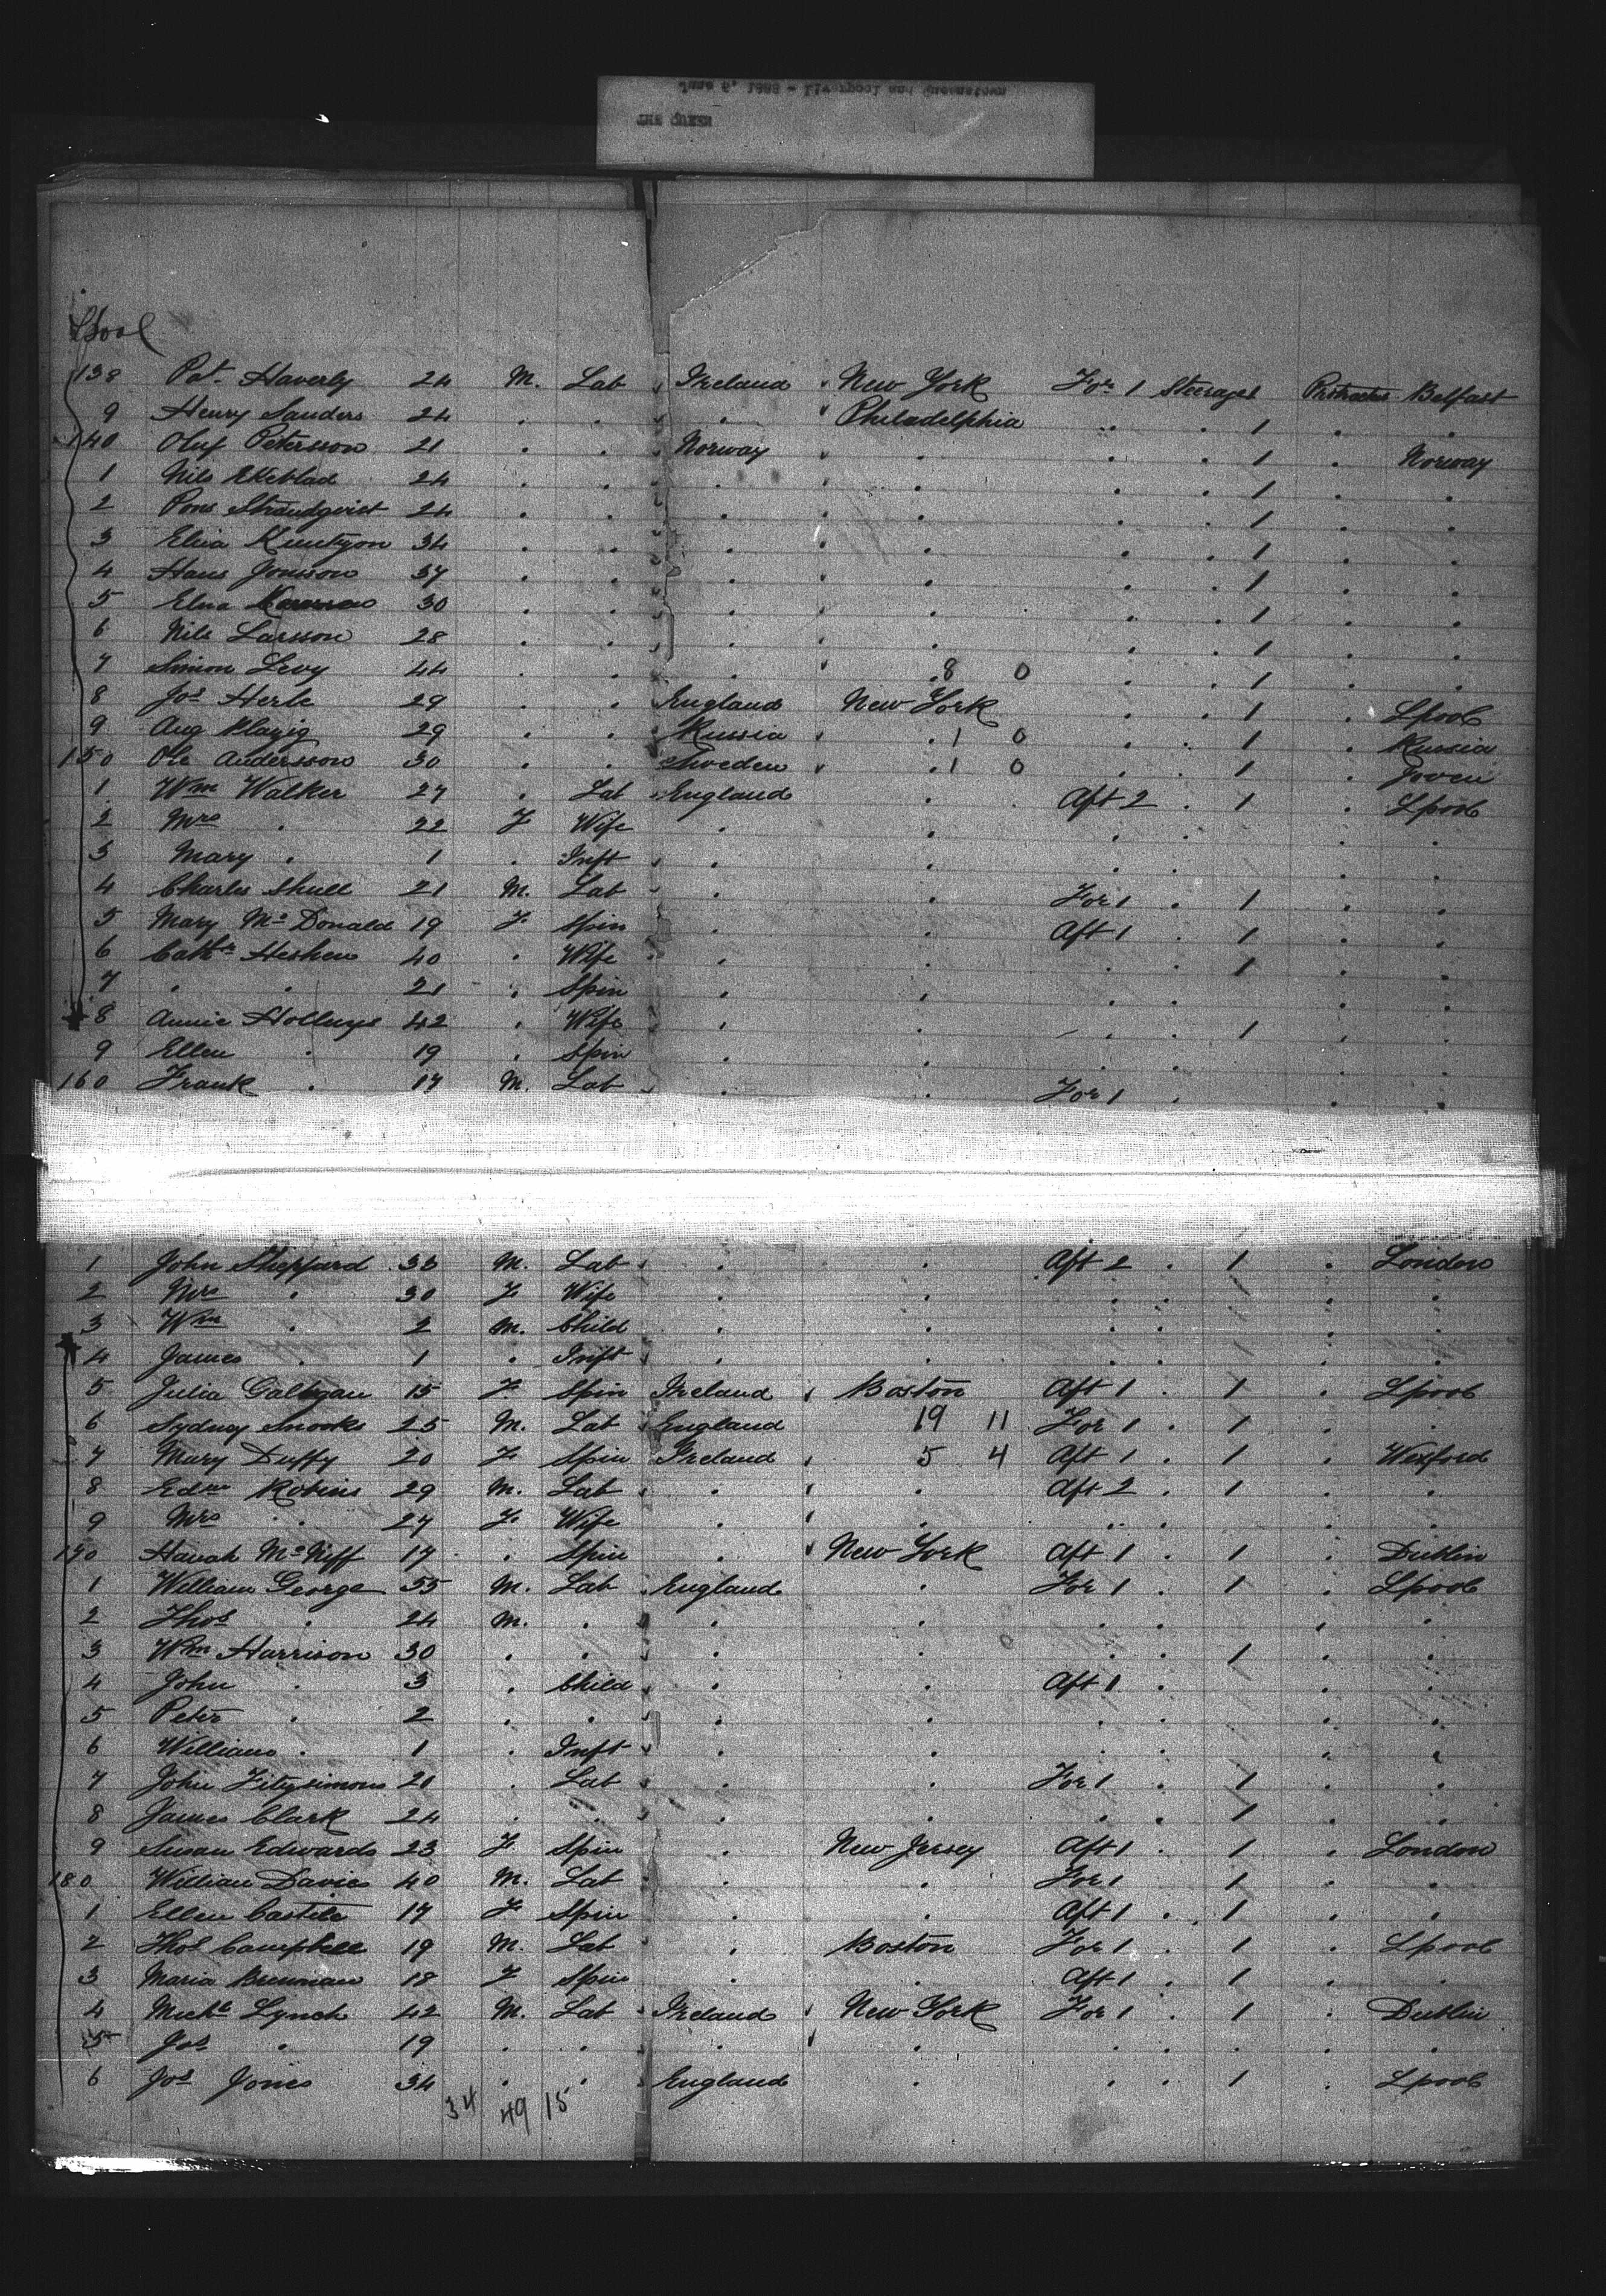 June 6, 1888 - Liverpool and Queenstown
THE QUEEN
Lpool
138 Pat. Haverly 24 M. Lab Ireland New York For 1 Steerage 1 Belfast
9 Henry Sanders 24 . . . Philadelphia . . 1 . .
140 Oluf Petersson 21 . . Norway . . . 1 . Norway
1 Nils Ekeblad 24 . . . . . . 1 . .
2 Pons Strandqvist 24 . . . . . . 1 . .
3 Elna 34 . . . . . . 1 . .
4 Hans Jonsson 37 . . . . . . 1 . .
5 Elna 30 . . . . . . 1 . .
6 Nils Larsson 28 . . . . . . 1 . .
7 Simon Levy 44 . . . . 8 0 . . 1 . .
8 Jos Herle 29 . . England New York . . 1 . Lpool
9 Aug 29 . . Russia . 1 0 . . 1 . Russia
150 Ole Andersson 30 . . Sweden . 1 0 . . 1 .
1 Wm Walker 27 . Lab England . Aft 2 . 1 . Lpool
2 Mrs . 22 F Wife . . . . . .
3 Mary . 1 . Inft . . . . . .
4 Charles Shull 21 M. Lab . . For 1 . 1 . .
5 Mary McDonald 19 F Spin . . Aft 1 . 1 . .
6 Cathe Heshen 40 . Wife . . . . 1 . .
7 . . 21 . Spin . . . . . .
8 Annie 42 . Wife . . . . 1 . .
9 Ellen . 19 . Spin . . . . . .
160 Frank . 17 M. Lab . . For 1 . . .
1 John Sheppard 33 M. Lab . . Aft 2 . 1 . London
2 Mrs . 30 F Wife . . . . . .
3 Wm . 2 M. Child . . . . . .
4 James . 1 . Inft . . . . . .
5 Julia 15 F Spin Ireland Boston Aft 1 . 1 . Lpool
6 Sydney Snooks 25 M. Lab England 19 11 For 1 . 1 . .
7 Mary Duffy 20 F Spin Ireland 5 4 Aft 1 . 1 . Wexford
8 Edw Robins 29 M. Lab . . Aft 2 . 1 . .
9 Mrs . 27 F Wife . . . . . .
170 Hanah McNiff 17 . Spin . New York Aft 1 . 1 . Dublin
1 William George 55 M. Lab England . For 1 . 1 . Lpool
2 Thos . 24 M. . . . . . . .
3 Wm Harrison 30 . . . . . . 1 . .
4 John . 3 . Child . . Aft 1 . . .
5 Peter . 2 . . . . . . . .
6 William . 1 . Inft . . . . . .
7 John Fitzsimons 20 . Lab . . For 1 . 1 . .
8 James Clark 24 . . . . . . 1 . .
9 Susan Edwards 23 F Spin . New Jersey Aft 1 . 1 . London
180 William Davies 40 M. Lab . . For 1 . 1 . .
1 Ellen Castile 17 F Spin . . Aft 1 . 1 . .
2 Thos Campbell 19 M. Lab . Boston For 1 . 1 . Lpool
3 Maria Brennan 18 F Spin . . Aft 1 . 1 . .
4 Michl Lynch 42 M. Lab Ireland New York For 1 . 1 . Dublin
5 Jos . 19 . . . . . . . .
6 Jos Jones 34 . . England . . . 1 . Lpool
34 49 15